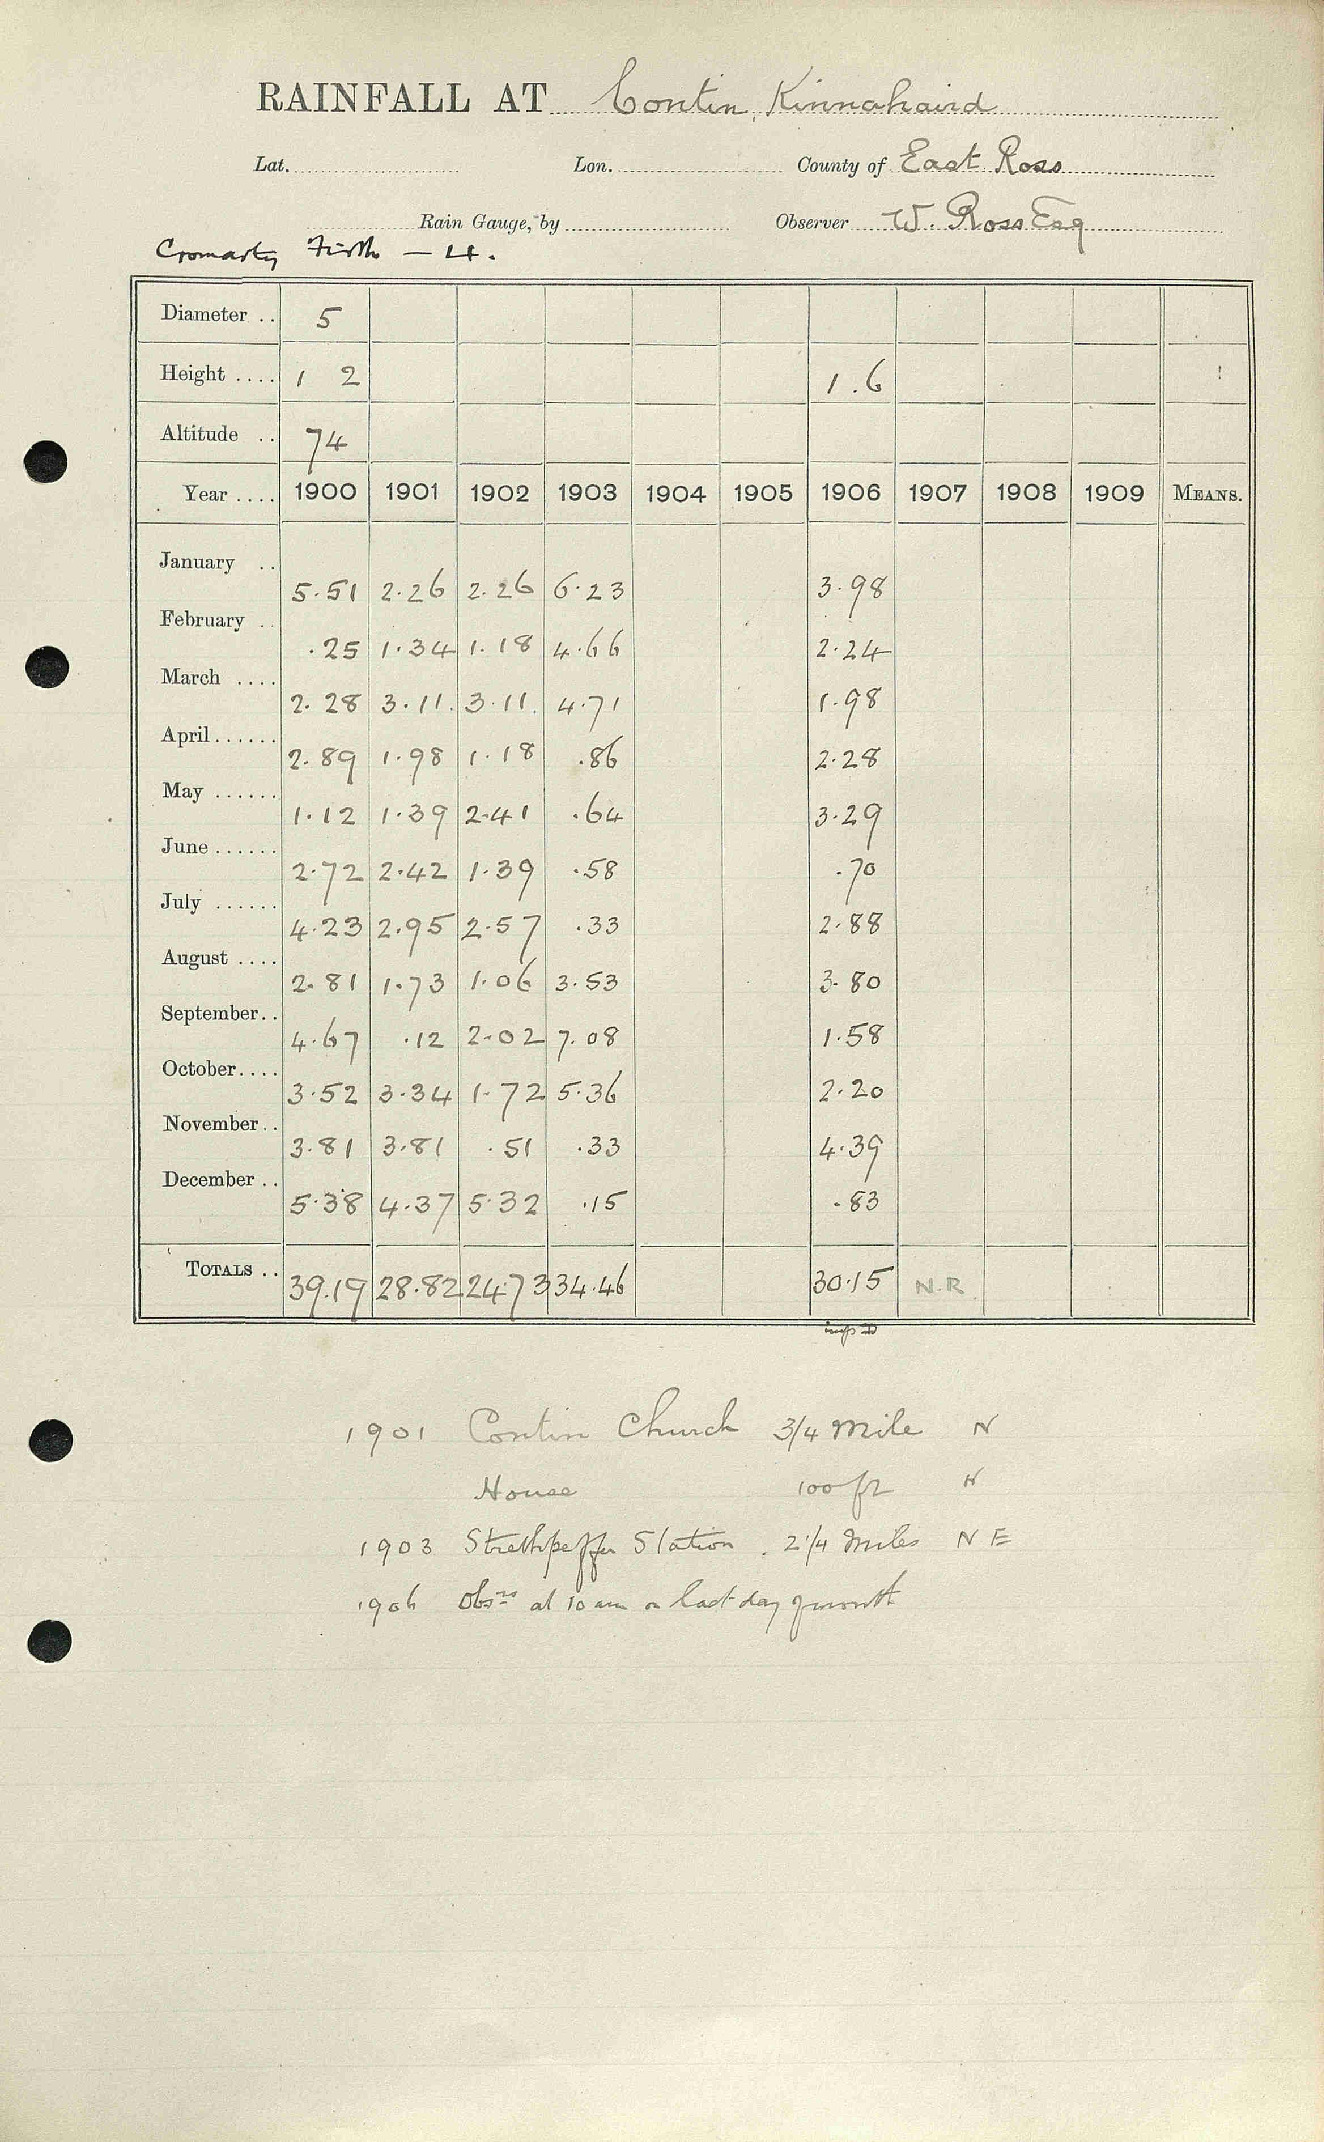 RAINFALL AT Contin, Kinnahaird
Lat. Lon. County of East Ross
Rain Gauge, by Observer W. Ross Esq
Cromarty Firth — 4.
Diameter .. 5
Height .... 1 2 1.6
Altitude .. 74
Year .... 1900 1901 1902 1903 1904 1905 1906 1907 1908 1909 MEANS.
January .. 5.51 2.26 2.26 6.23 3.98
February .. .25 1.34 1.18 4.66 2.24
March .... 2.28 3.11. 3.11. 4.71 1.98
April...... 2.89 1.98 1.18 .86 2.28
May ...... 1.12 1.39 2.41 .64 3.29
June ...... 2.72 2.42 1.39 .58 .70
July ...... 4.23 2.95 2.57 .33 2.88
August .... 2.81 1.73 1.06 3.53 3.80
September.. 4.67 .12 2.02 7.08 1.58
October.... 3.52 3.34 1.72 5.36 2.20
November.. 3.81 3.81 .51 .33 4.39
December .. 5.38 4.37 5.32 .15 .83
TOTALS .. 39.19 28.82 24.73 34.46 30.15 N.R.
1901 Contin Church 3/4 Mile N
House 100 ft N
1903 Strathpeffer Station . 2 1/4 Miles N E
1906 Obsns at 10 am on last day of month